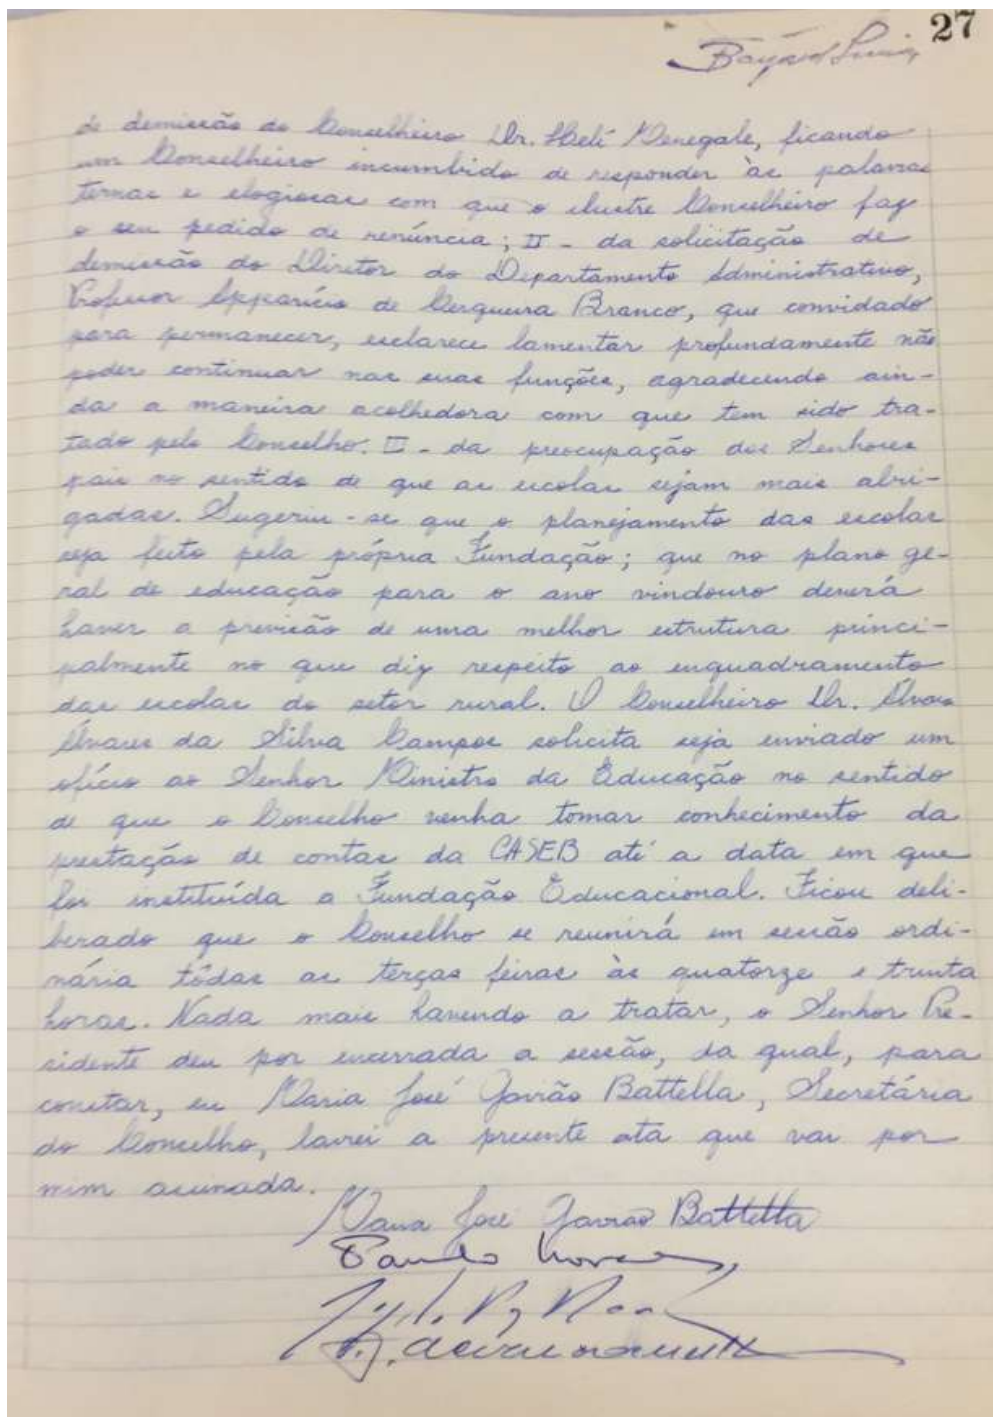 27
de demissão do Conselheiro Dr. Heli Menegale, ficando
um Conselheiro incumbido de responder às palavras
ternas e elogiosas com que o ilustre Conselheiro faz
o seu pedido de renúncia; II - da solicitação de
demissão do Diretor do Departamento Administrativo,
Professor Apparício de Cerqueira Branco, que convidado
para permanecer, esclarece lamentar profundamente não
poder continuar nas suas funções, agradecendo ain-
da a maneira acolhedora com que tem sido tra-
tado pelo Conselho. III - da preocupação dos Senhores
pais no sentido de que as escolas sejam mais abri-
gadas. Sugeriu-se que o planejamento das escolas
seja feito pela própria Fundação; que no plano ge-
ral de educação para o ano vindouro deverá
haver a previsão de uma melhor estrutura princi-
palmente no que diz respeito ao enquadramento
das escolas do setor rural. O Conselheiro Dr. Álvaro
Álvares da Silva Campos solicita seja enviado um
ofício ao Senhor Ministro da Educação no sentido
de que o Conselho venha tomar conhecimento da
prestação de contas da CASEB até a data em que
foi instituída a Fundação Educacional. Ficou deli-
berado que o Conselho se reunirá em sessão ordi-
nária tôdas as terças feiras às quatorze e trinta
horas. Nada mais havendo a tratar, o Senhor Pre-
sidente deu por encerrada a sessão, da qual, para
constar, eu Maria José Gavião Battella, Secretária
do Conselho, lavrei a presente ata que vai por
mim assinada.
Maria José Gavião Battella